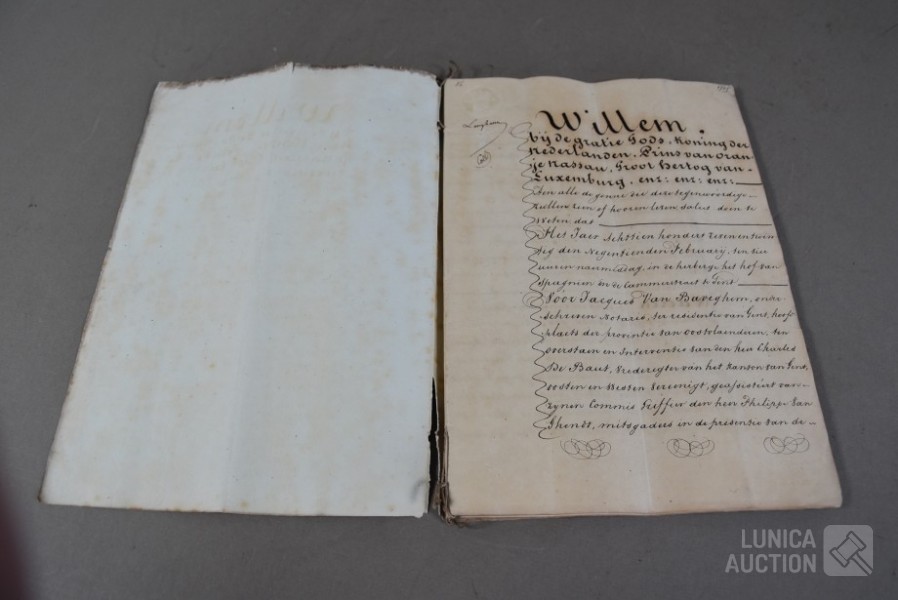 Willem.
bij de gratie Gods, Koning der
Nederlanden, Prins van oran-
je Nassau, Groot Hertog van
Luxemburg, enz: enz: enz:
Aen alle de geene die deze tegenwoordige
zullen zien of hooren lezen salut doen te
weten dat
Het Jaer Achttien hondert zevenentwin
tig den Negentienden February, ten dry
uren naermiddag, in de herberge het hof van
Spagnien in de Cammerstraet te Gent
Voor Jacques Van Bareghem, onde
schreven Notaris, ter residentie van Gent, hoof
plaets der provintie van oostvlaenderen, ten
overstaen en Interventie van den heer Charles
De Baut, Vrederegter van het Kanton van Gent,
oosten en Westen Vereenigt, geassisteert van
zynen Commis Greffier den heer Philippe Van
Ghendt, mitsgaders in de presentie van de
LUNICA
AUCTION